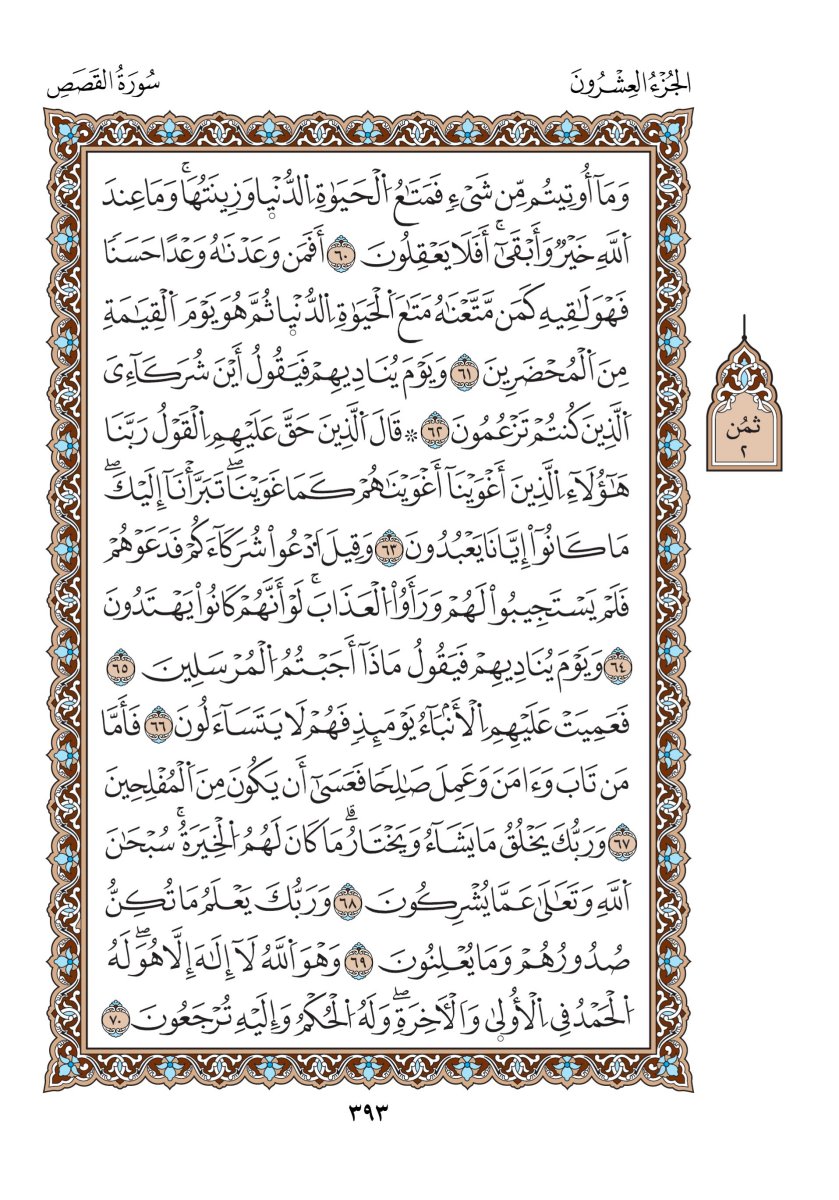 الجُزْءُ العِشْرُونَ
سُورَةُ القَصَصِ
وَمَآ أُوتِيتُم مِّن شَىْءٍ فَمَتَٰعُ اُ۬لْحَيَوٰةِ اِ۬لدُّنْي۪ا وَزِينَتُهَاۚ وَمَا عِندَ
اَ۬للَّهِ خَيْرٌ وَأَبْقَىٰٓۚ أَفَلَا يَعْقِلُونَ ٦٠ أَفَمَن وَعَدْنَٰهُ وَعْدًا حَسَنًا
فَهْوَ لَٰقِيهِ كَمَن مَّتَّعْنَٰهُ مَتَٰعَ اَ۬لْحَيَوٰةِ اِ۬لدُّنْي۪ا ثُمَّ هُوَ يَوْمَ اَ۬لْقِيَٰمَةِ
مِنَ اَ۬لْمُحْضَرِينَ ٦١ وَيَوْمَ يُنَادِيهِمْ فَيَقُولُ أَيْنَ شُرَكَآءِىَ
اَ۬لَّذِينَ كُنتُمْ تَزْعُمُونَ ٦٢ ۞ قَالَ اَ۬لَّذِينَ حَقَّ عَلَيْهِمِ اِ۬لْقَوْلُ رَبَّنَا
هَٰٓؤُلَآءِ اِ۬لَّذِينَ أَغْوَيْنَآ أَغْوَيْنَٰهُمْ كَمَا غَوَيْنَاۖ تَبَرَّأْنَآ إِلَيْكَۖ
مَا كَانُوٓاْ إِيَّانَا يَعْبُدُونَ ٦٣ وَقِيلَ اَ۟دْعُواْ شُرَكَآءَكُمْ فَدَعَوْهُمْ
فَلَمْ يَسْتَجِيبُواْ لَهُمْ وَرَأَوُاْ اُ۬لْعَذَابَۚ لَوْ أَنَّهُمْ كَانُواْ يَهْتَدُونَ
٦٤ وَيَوْمَ يُنَادِيهِمْ فَيَقُولُ مَاذَآ أَجَبْتُمُ اُ۬لْمُرْسَلِينَ ٦٥
فَعَمِيَتْ عَلَيْهِمِ اِ۬لْأَنۢبَآءُ يَوْمَئِذٍ فَهُمْ لَا يَتَسَآءَلُونَ ٦٦ فَأَمَّا
مَن تَابَ وَءَامَنَ وَعَمِلَ صَٰلِحًا فَعَسَىٰٓ أَن يَكُونَ مِنَ اَ۬لْمُفْلِحِينَ
٦٧ وَرَبُّكَ يَخْلُقُ مَا يَشَآءُ وَيَخْتَارُۗ مَا كَانَ لَهُمُ اُ۬لْخِيَرَةُۚ سُبْحَٰنَ
اَ۬للَّهِ وَتَعَٰلَىٰ عَمَّا يُشْرِكُونَ ٦٨ وَرَبُّكَ يَعْلَمُ مَا تُكِنُّ
صُدُورُهُمْ وَمَا يُعْلِنُونَ ٦٩ وَهْوَ اَ۬للَّهُ لَآ إِلَٰهَ إِلَّا هُوَۖ لَهُ
اُ۬لْحَمْدُ فِى اِ۬لْأُول۪ىٰ وَالْأٓخِرَةِۖ وَلَهُ اُ۬لْحُكْمُ وَإِلَيْهِ تُرْجَعُونَ ٧٠
ثمُن
٢
٣٩٣